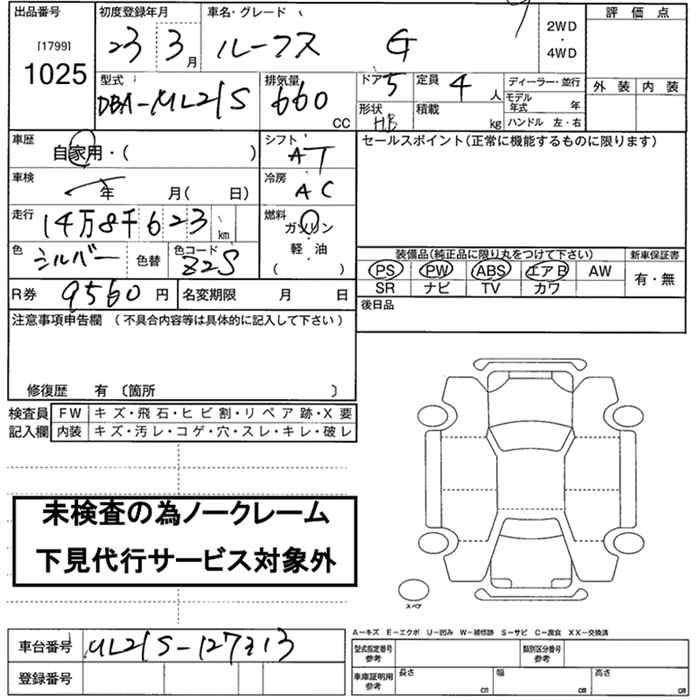 出品番号 初度登録年月 車名・グレード 評価点
[1799]
1025
23 3月 ルークス G
2WD
・
4WD
外装 内装
型式 排気量 ドア 5 定員 4人 ディーラー・並行
DBA-ML21S 660 CC
形状 HB 積載 kg モデル年式 年
ハンドル 左・右
車歴 自家用・( ) シフト AT セールスポイント(正常に機能するものに限ります)
車検 年 月( 日) 冷房 AC
走行 14万8千623km 燃料 ガソリン
軽・油
( )
色 シルバー 色替 色コード Z2S
装備品(純正品に限り丸をつけて下さい) 新車保証書
PS PW ABS エアB AW 有・無
SR ナビ TV カワ
R券 9560円 名変期限 月 日
後日品
注意事項申告欄 (不具合内容等は具体的に記入して下さい)
修復歴 有 〔箇所 〕
検査員 FW キズ・飛石・ヒビ割・リペア跡・X要
記入欄 内装 キズ・汚レ・コゲ・穴・スレ・キレ・破レ
未検査の為ノークレーム
下見代行サービス対象外
スペア
A-キズ E-エクボ U-凹み W-補修跡 S-サビ C-腐食 XX-交換済
車台番号 ML21S-127313
型式指定番号 参考 類別区分番号 参考
登録番号
車庫証明用 参考 長さ cm 幅 cm 高さ cm